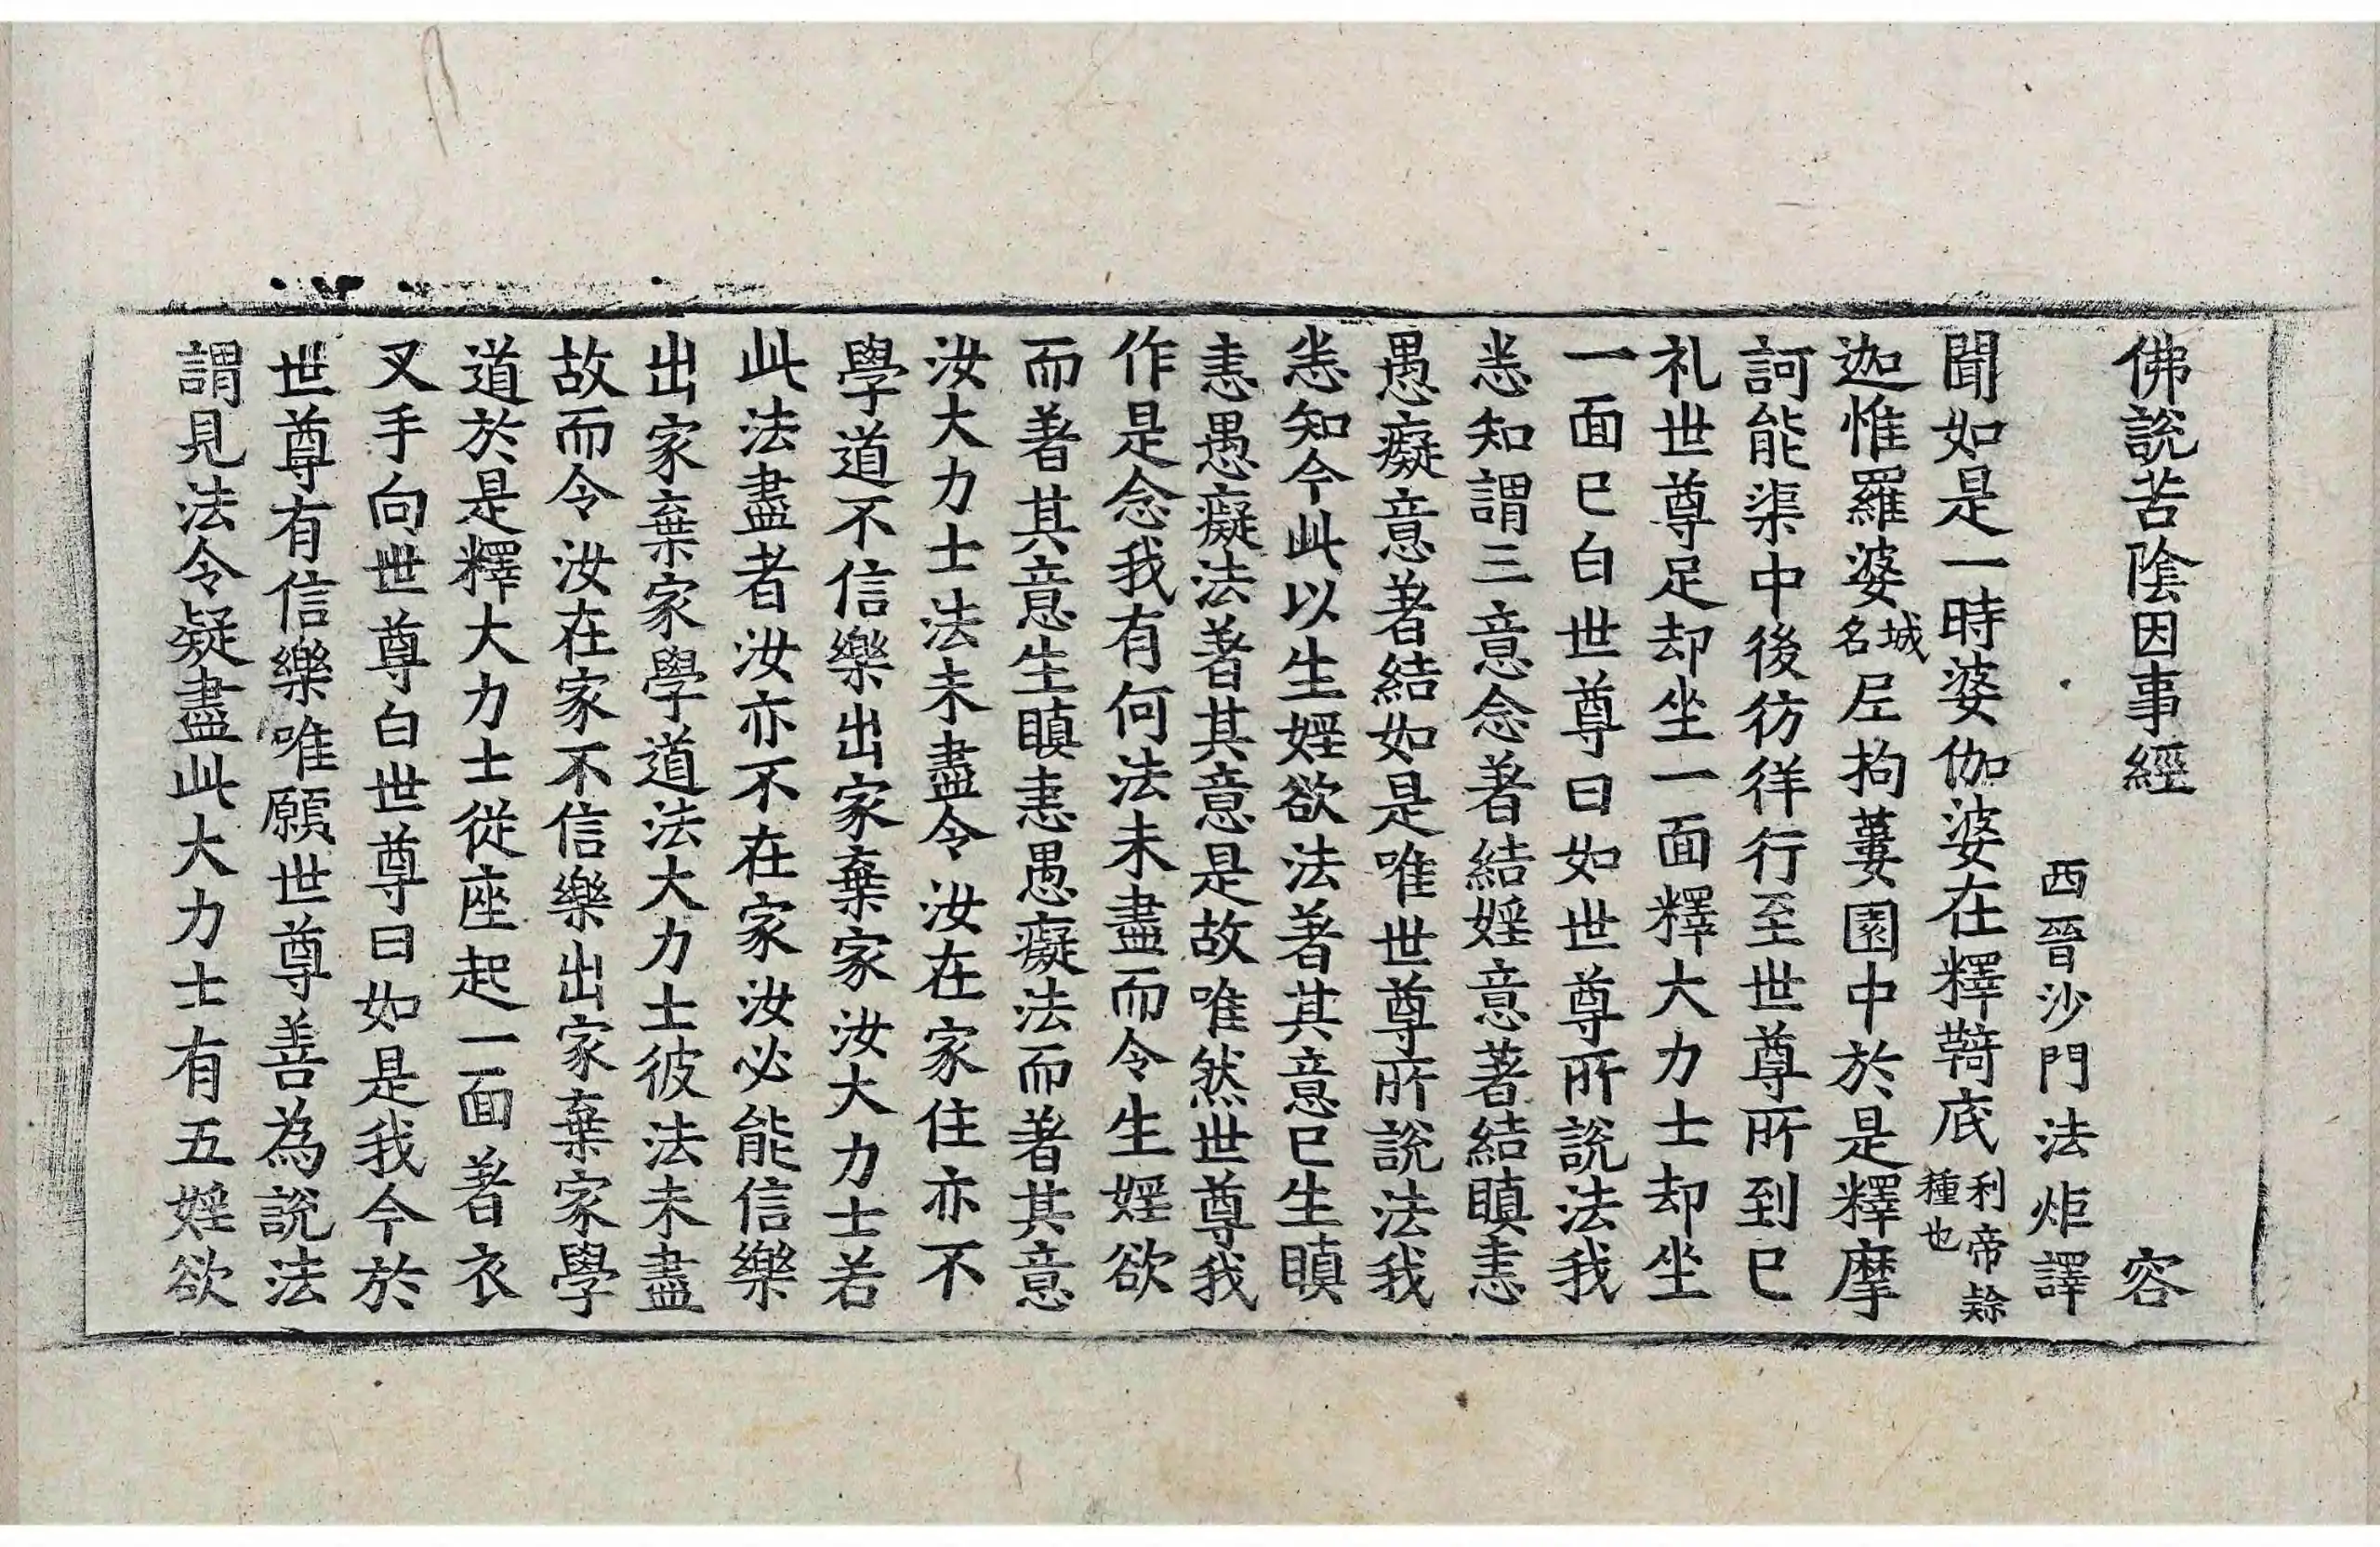 佛說苦陰因事經 容
西晉沙門法炬譯
聞如是一時婆伽婆在釋鞞底利帝餘種也
迦惟羅婆城名尼拘蔞園中於是釋摩
訶能渠中後彷徉行至世尊所到已
礼世尊足却坐一面釋大力士却坐
一面已白世尊曰如世尊所說法我
悉知謂三意念著結婬意著結瞋恚
愚癡意著結如是唯世尊所說法我
悉知今此以生婬欲法著其意已生瞋
恚愚癡法著其意是故唯然世尊我
作是念我有何法未盡而令生婬欲
而著其意生瞋恚愚癡法而著其意
汝大力士法未盡令汝在家住亦不
學道不信樂出家棄家汝大力士若
此法盡者汝亦不在家汝必能信樂
出家棄家學道法大力士彼法未盡
故而令汝在家不信樂出家棄家學
道於是釋大力士從座起一面著衣
叉手向世尊白世尊曰如是我今於
世尊有信樂唯願世尊善為說法
謂見法令疑盡此大力士有五婬欲